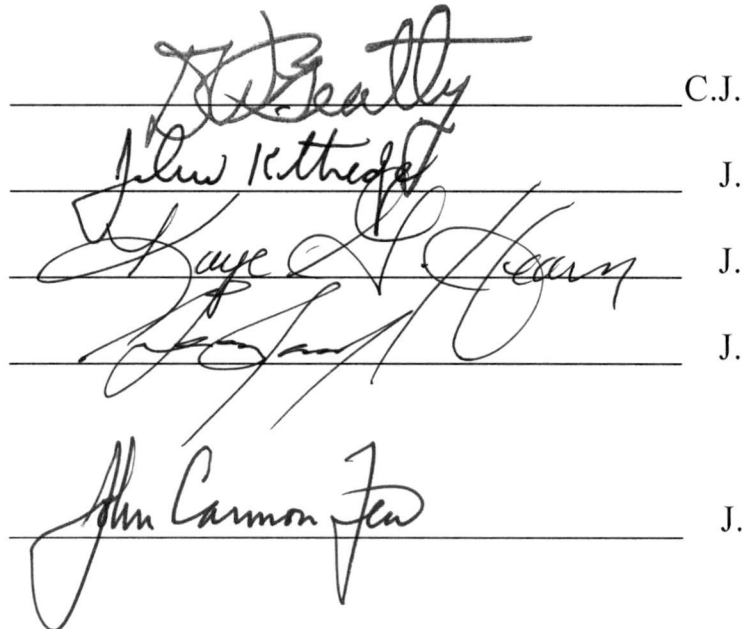 Beatty C.J.
John Kittredge J.
Kaye G. Hearn J.
J.
John Cannon Few J.